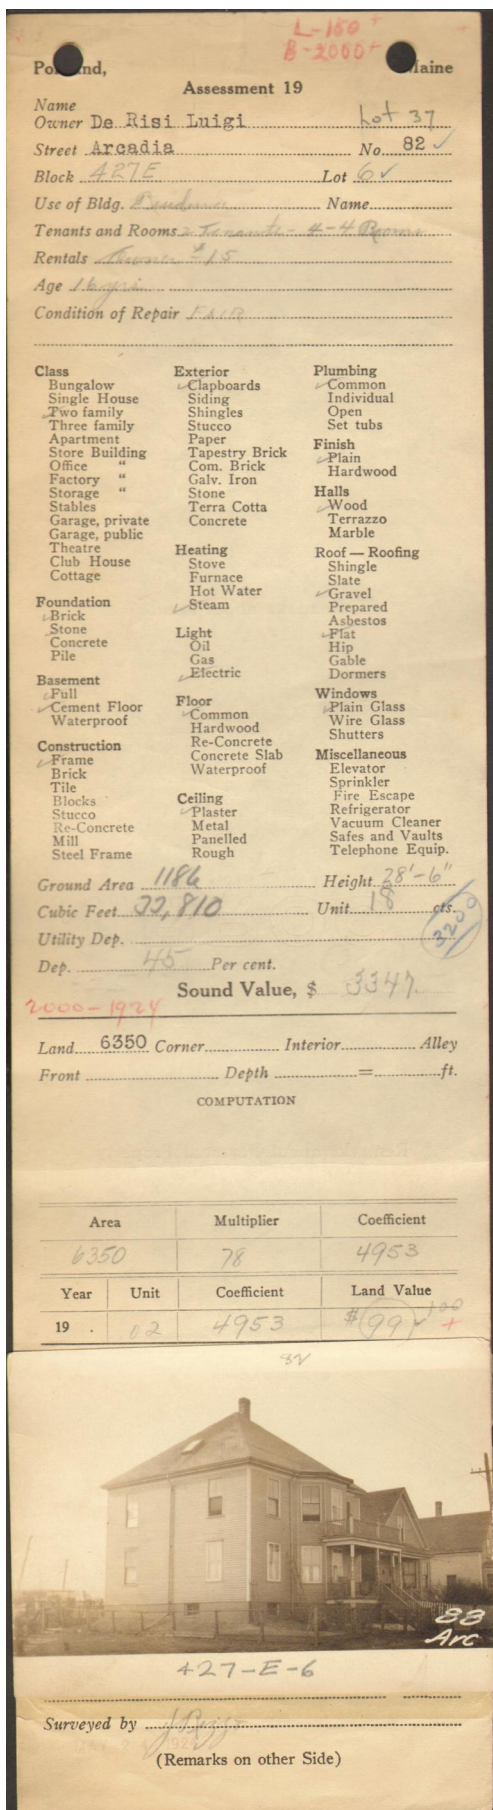 L-150 +
B-2000+
Portland, Maine
Assessment 19
Name
Owner De Risi Luigi Lot 37
Street Arcadia No. 82 ✓
Block 427E Lot 6 ✓
Use of Bldg. Residence Name
Tenants and Rooms 2 Tenants - 4-4 Rooms
Rentals Owner $15
Age 16 yrs
Condition of Repair FAIR
Class
Bungalow
Single House
✓Two family
Three family
Apartment
Store Building
Office "
Factory "
Storage "
Stables
Garage, private
Garage, public
Theatre
Club House
Cottage
Foundation
✓Brick
Stone
Concrete
Pile
Basement
✓Full
✓Cement Floor
Waterproof
Construction
✓Frame
Brick
Tile
Blocks
Stucco
Re-Concrete
Mill
Steel Frame
Exterior
✓Clapboards
Siding
Shingles
Stucco
Paper
Tapestry Brick
Com. Brick
Galv. Iron
Stone
Terra Cotta
Concrete
Heating
Stove
Furnace
Hot Water
✓Steam
Light
Oil
Gas
✓Electric
Floor
✓Common
Hardwood
Re-Concrete
Concrete Slab
Waterproof
Ceiling
✓Plaster
Metal
Panelled
Rough
Plumbing
✓Common
Individual
Open
Set tubs
Finish
✓Plain
Hardwood
Halls
✓Wood
Terrazzo
Marble
Roof — Roofing
Shingle
Slate
✓Gravel
Prepared
Asbestos
✓Flat
Hip
Gable
Dormers
Windows
✓Plain Glass
Wire Glass
Shutters
Miscellaneous
Elevator
Sprinkler
Fire Escape
Refrigerator
Vacuum Cleaner
Safes and Vaults
Telephone Equip.
Ground Area 1186 Height 28'-6"
Cubic Feet 33,810 Unit 18 cts.
3200
Utility Dep.
Dep. 45 Per cent.
Sound Value, $ 3347.
2000-1924
Land 6350 Corner Interior Alley
Front Depth = ft.
COMPUTATION
Area Multiplier Coefficient
6350 78 4953
Year Unit Coefficient Land Value
19 . 02 4953 $99 100 +
82
88
Arc
427-E-6
Surveyed by
(Remarks on other Side)